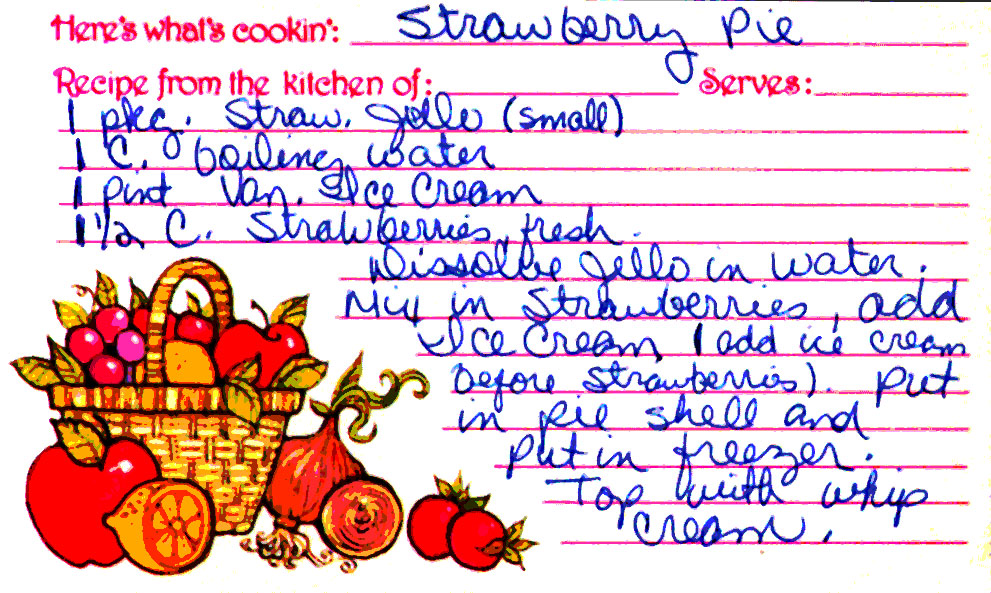 Here's what's cookin': Strawberry Pie
Recipe from the kitchen of: Serves:
1 pkg. Straw. Jello (small)
1 C. boiling water
1 pint Van. Ice Cream
1 1/2 C. Strawberries, fresh.
Dissolve Jello in water.
Mix in Strawberries, add
Ice Cream (add ice cream
before strawberries). Put
in pie shell and
put in freezer.
Top with whip
cream.